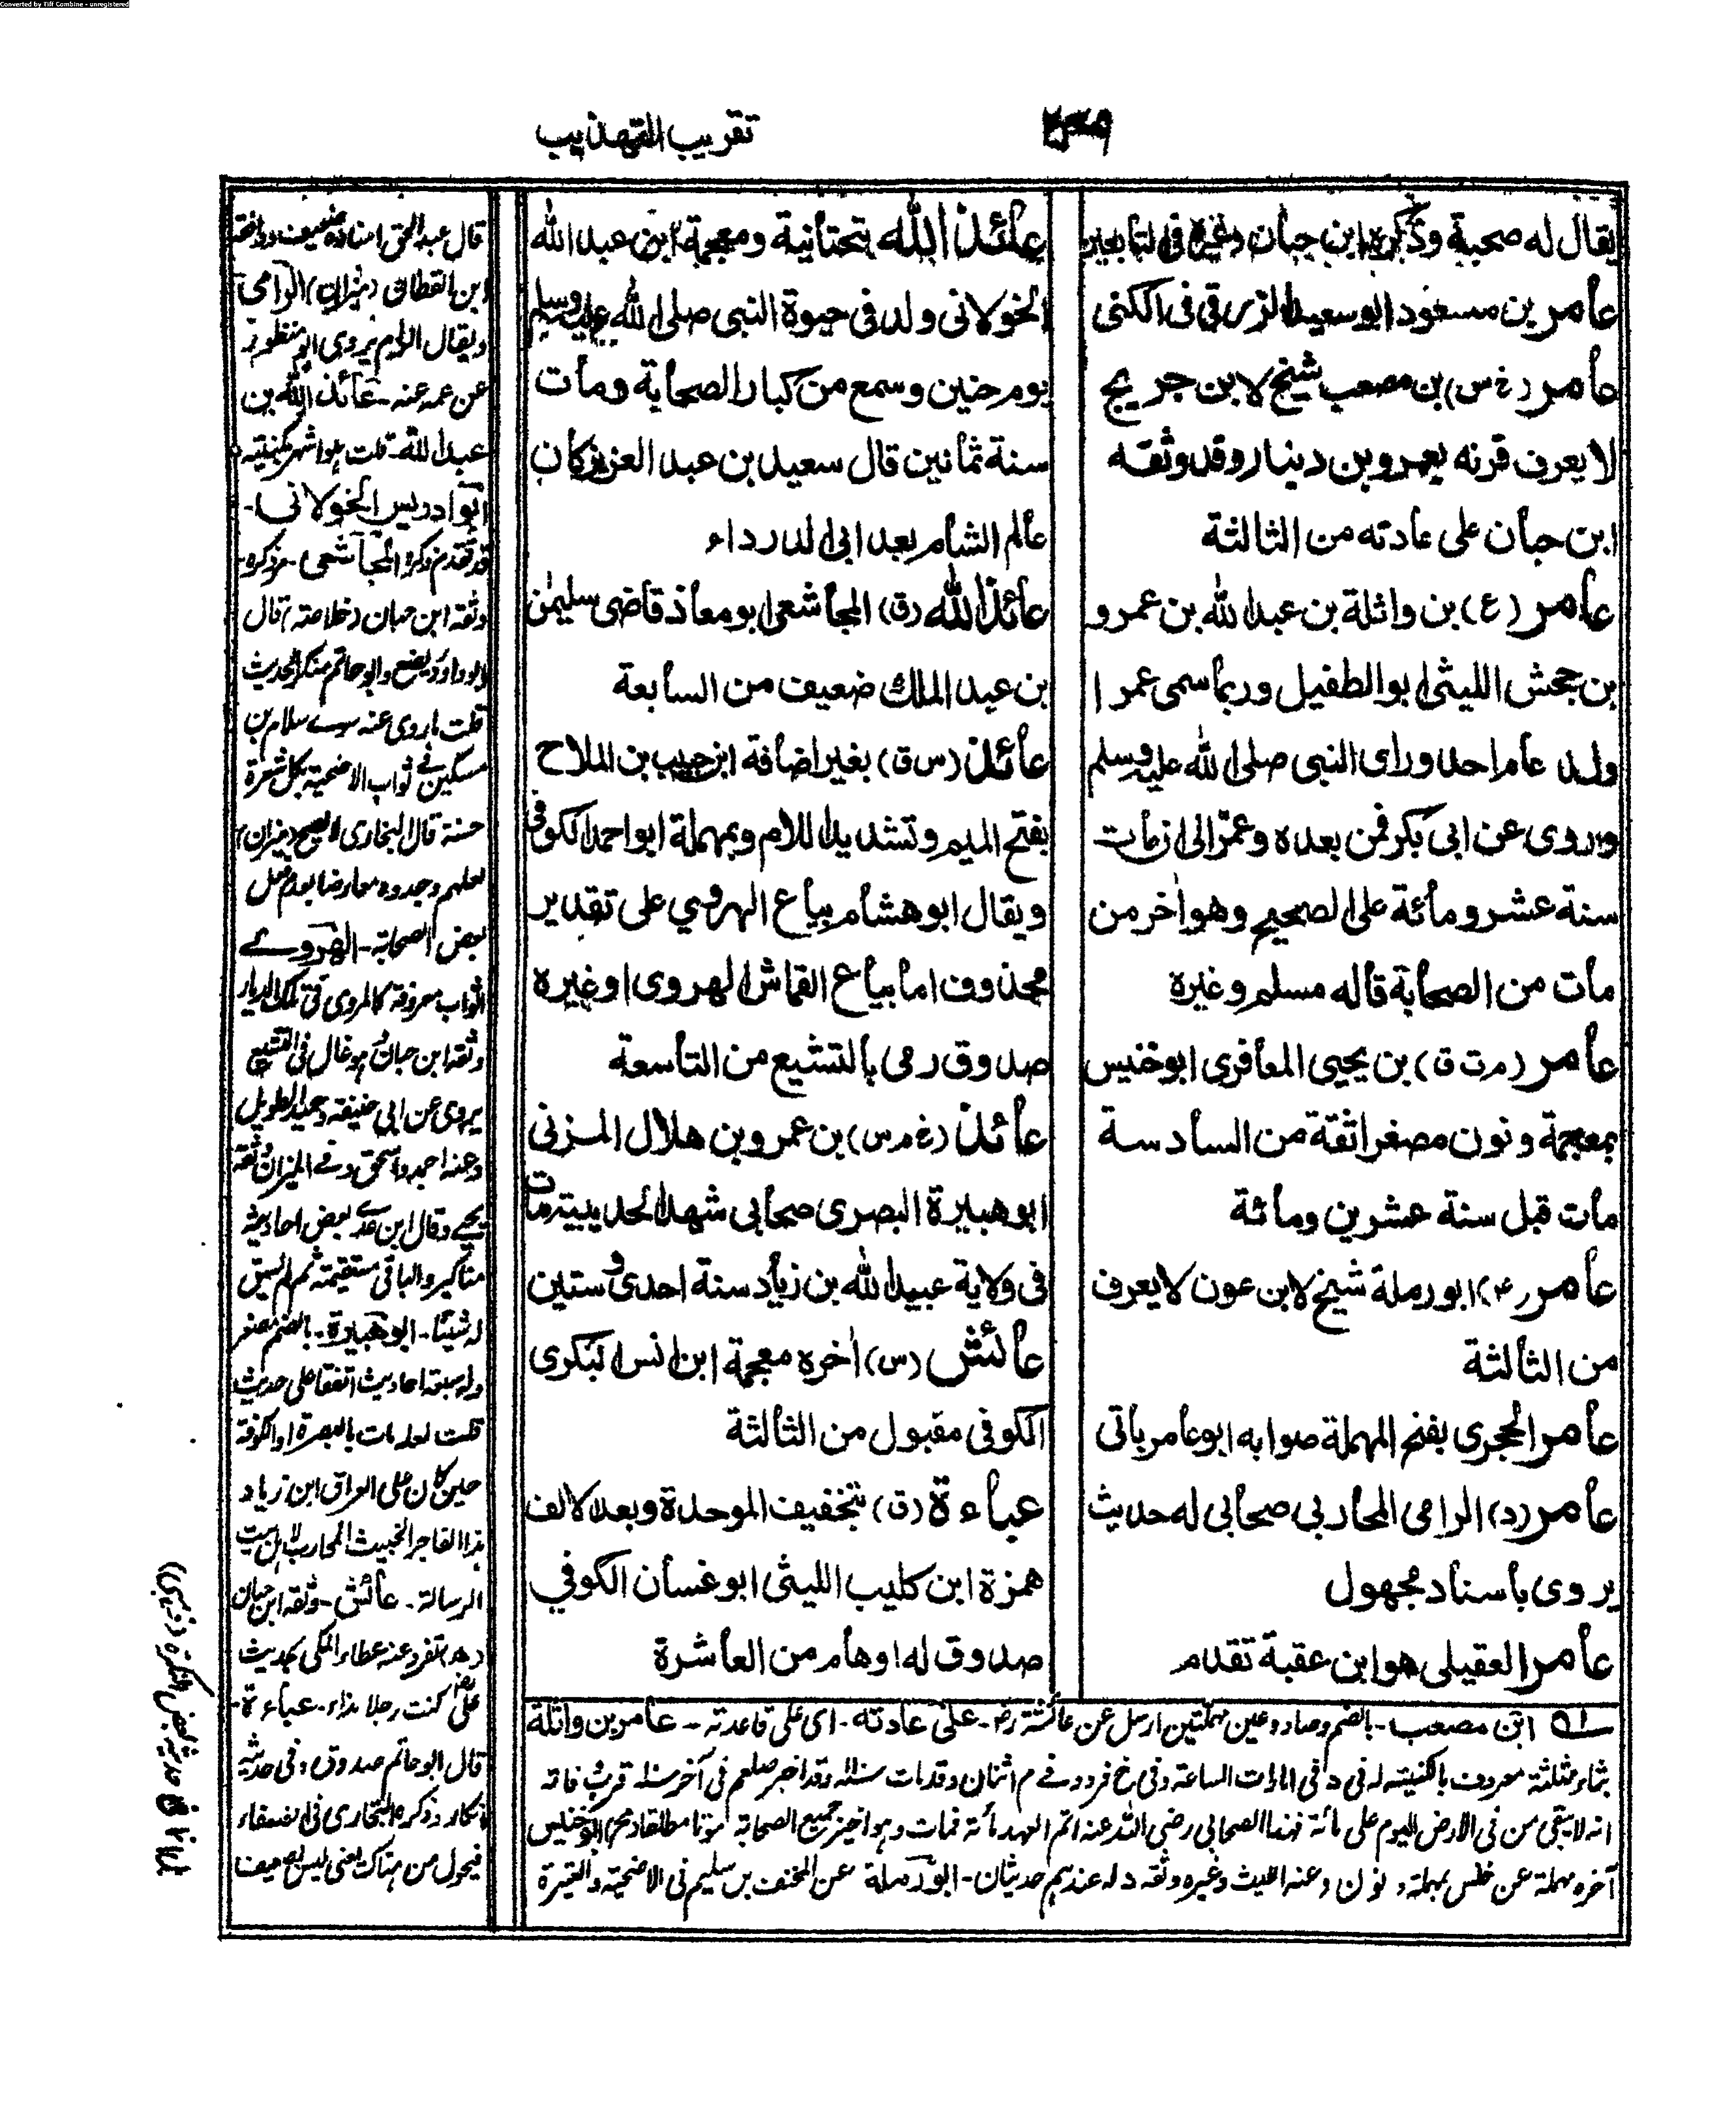 Converted by Tiff Combine - unregistered
تقريب التهذيب
يقال له صحبة وذكره ابن حبان وغيره في التابعين
عامر بن مسعود ابو سعيد الزرقي في الكنى
عامر (غ س) بن مصعب شيخ لابن جريج
لا يعرف قرنه بعمرو بن دينار وقد وثقه
ابن حبان على عادته من الثالثة
عامر (ع) بن واثلة بن عبد الله بن عمرو
بن جحش الليثي ابو الطفيل وربما سمى عمرا
ولد عام احد وراى النبي صلى الله عليه وسلم
وروى عن ابي بكر فمن بعده وعمر الى ان مات
سنة عشر ومائة على الصحيح وهو اخر من
مات من الصحابة قاله مسلم وغيره
عامر (م ت ق) بن يحيى المعافري ابو خنيس
بمعجمة ونون مصغرا ثقة من السادسة
مات قبل سنة عشرين ومائة
عامر (۴) ابو رملة شيخ لابن عون لا يعرف
من الثالثة
عامر الحجري بفتح المهملة صوابه ابو عامر ياتي
عامر (د) الرامي المحاربي صحابي له حديث
يروى باسناد مجهول
عامر العقيلي هو ابن عقبة تقدم
عائذ الله بتحتانية ومعجمة ابن عبد الله
الخولاني ولد في حيوة النبي صلى الله عليه وسلم
يوم حنين وسمع من كبار الصحابة ومات
سنة ثمانين قال سعيد بن عبد العزيز كان
عالم الشام بعد ابي الدرداء
عائذ الله (ق) المجاشعي ابو معاذ قاضي سليمن
بن عبد الملك ضعيف من السابعة
عائذ (س ق) بغير اضافة ابن حبيب بن الملاح
بفتح الميم وتشديد اللام وبمهملة ابو احمد الكوفي
ويقال ابو هشام بياع الهروي على تقدير
محذوف اما بياع القماش الهروي او غيره
صدوق رمي بالتشيع من التاسعة
عائذ (خ م س) بن عمرو بن هلال المزني
ابو هبيرة البصري صحابي شهد الحديبية مات
في ولاية عبيد الله بن زياد سنة احدى وستين
عائش (س) اخره معجمة ابن انس البكري
الكوفي مقبول من الثالثة
عباءة (ق) بتخفيف الموحدة وبعد الالف
همزة ابن كليب الليثي ابو غسان الكوفي
صدوق له اوهام من العاشرة
قال عبد الحق اسناده ضعيف ووافقه
ابن القطان (ميزان) الرامي
ويقال الرام يروي ابو منظور
عن عمه عنه - عائذ الله بن
عبد الله - قلت هو اشهر بكنيته
ابو ادريس الخولاني -
قد تقدم ذكره المجاشعي - مر ذكره -
وثقه ابن حبان (خلاصة) قال
ابو داود يضع وابو حاتم منكر الحديث
قلت ما روى عنه سوى سلام بن
مسكين في ثواب الاضحية بكل شعرة
حسنة قال البخاري لا يصح (ميزان)
بعض الصحابة - الهروي
وثقه ابن حبان هو غال في التشيع
يروي عن ابي حنيفة وحميد الطويل
وعنه احمد واسحق وفي الميزان وثقه
يحيى وقال ابن عدي بعض احاديثه
مناكير والباقي مستقيمة
له شيئا - ابو هبيرة - بالضم مصغر
وله سبعة احاديث اتفقا على حديث
قلت لعله مات بالبصرة او الكوفة
حين كان على العراق ابن زياد
هذا الفاجر الخبيث المحارب لاهل بيت
الرسالة - عائش - وثقه ابن حبان
تفرد عنه عطاء المكي بحديث
علي كنت رجلا مذاء - عباءة -
قال ابو حاتم صدوق وفي حديثه
انكار وذكره البخاري في الضعفاء
فيحول من هناك يعني ليس بضعيف
ابن مصعب - بالضم وصاد وعين مهملتين ارسل عن عائشة رض - على عادته - اى على قاعدته - عامر بن واثلة
بثاء مثلثة معروف بالكنية له في
انه لا يبقى من في الارض اليوم على مائة فهذا الصحابي رضي الله عنه اتم العهد مائة فمات وهو اخير جميع الصحابة موتا مطلقا ابو خنيس
آخره مهملة عن حنش بمهملة ونون وعنه الليث وغيره وثقه د له عندهم حديثان - ابو رملة عن المخنف بن سليم في الاضحية والعتيرة